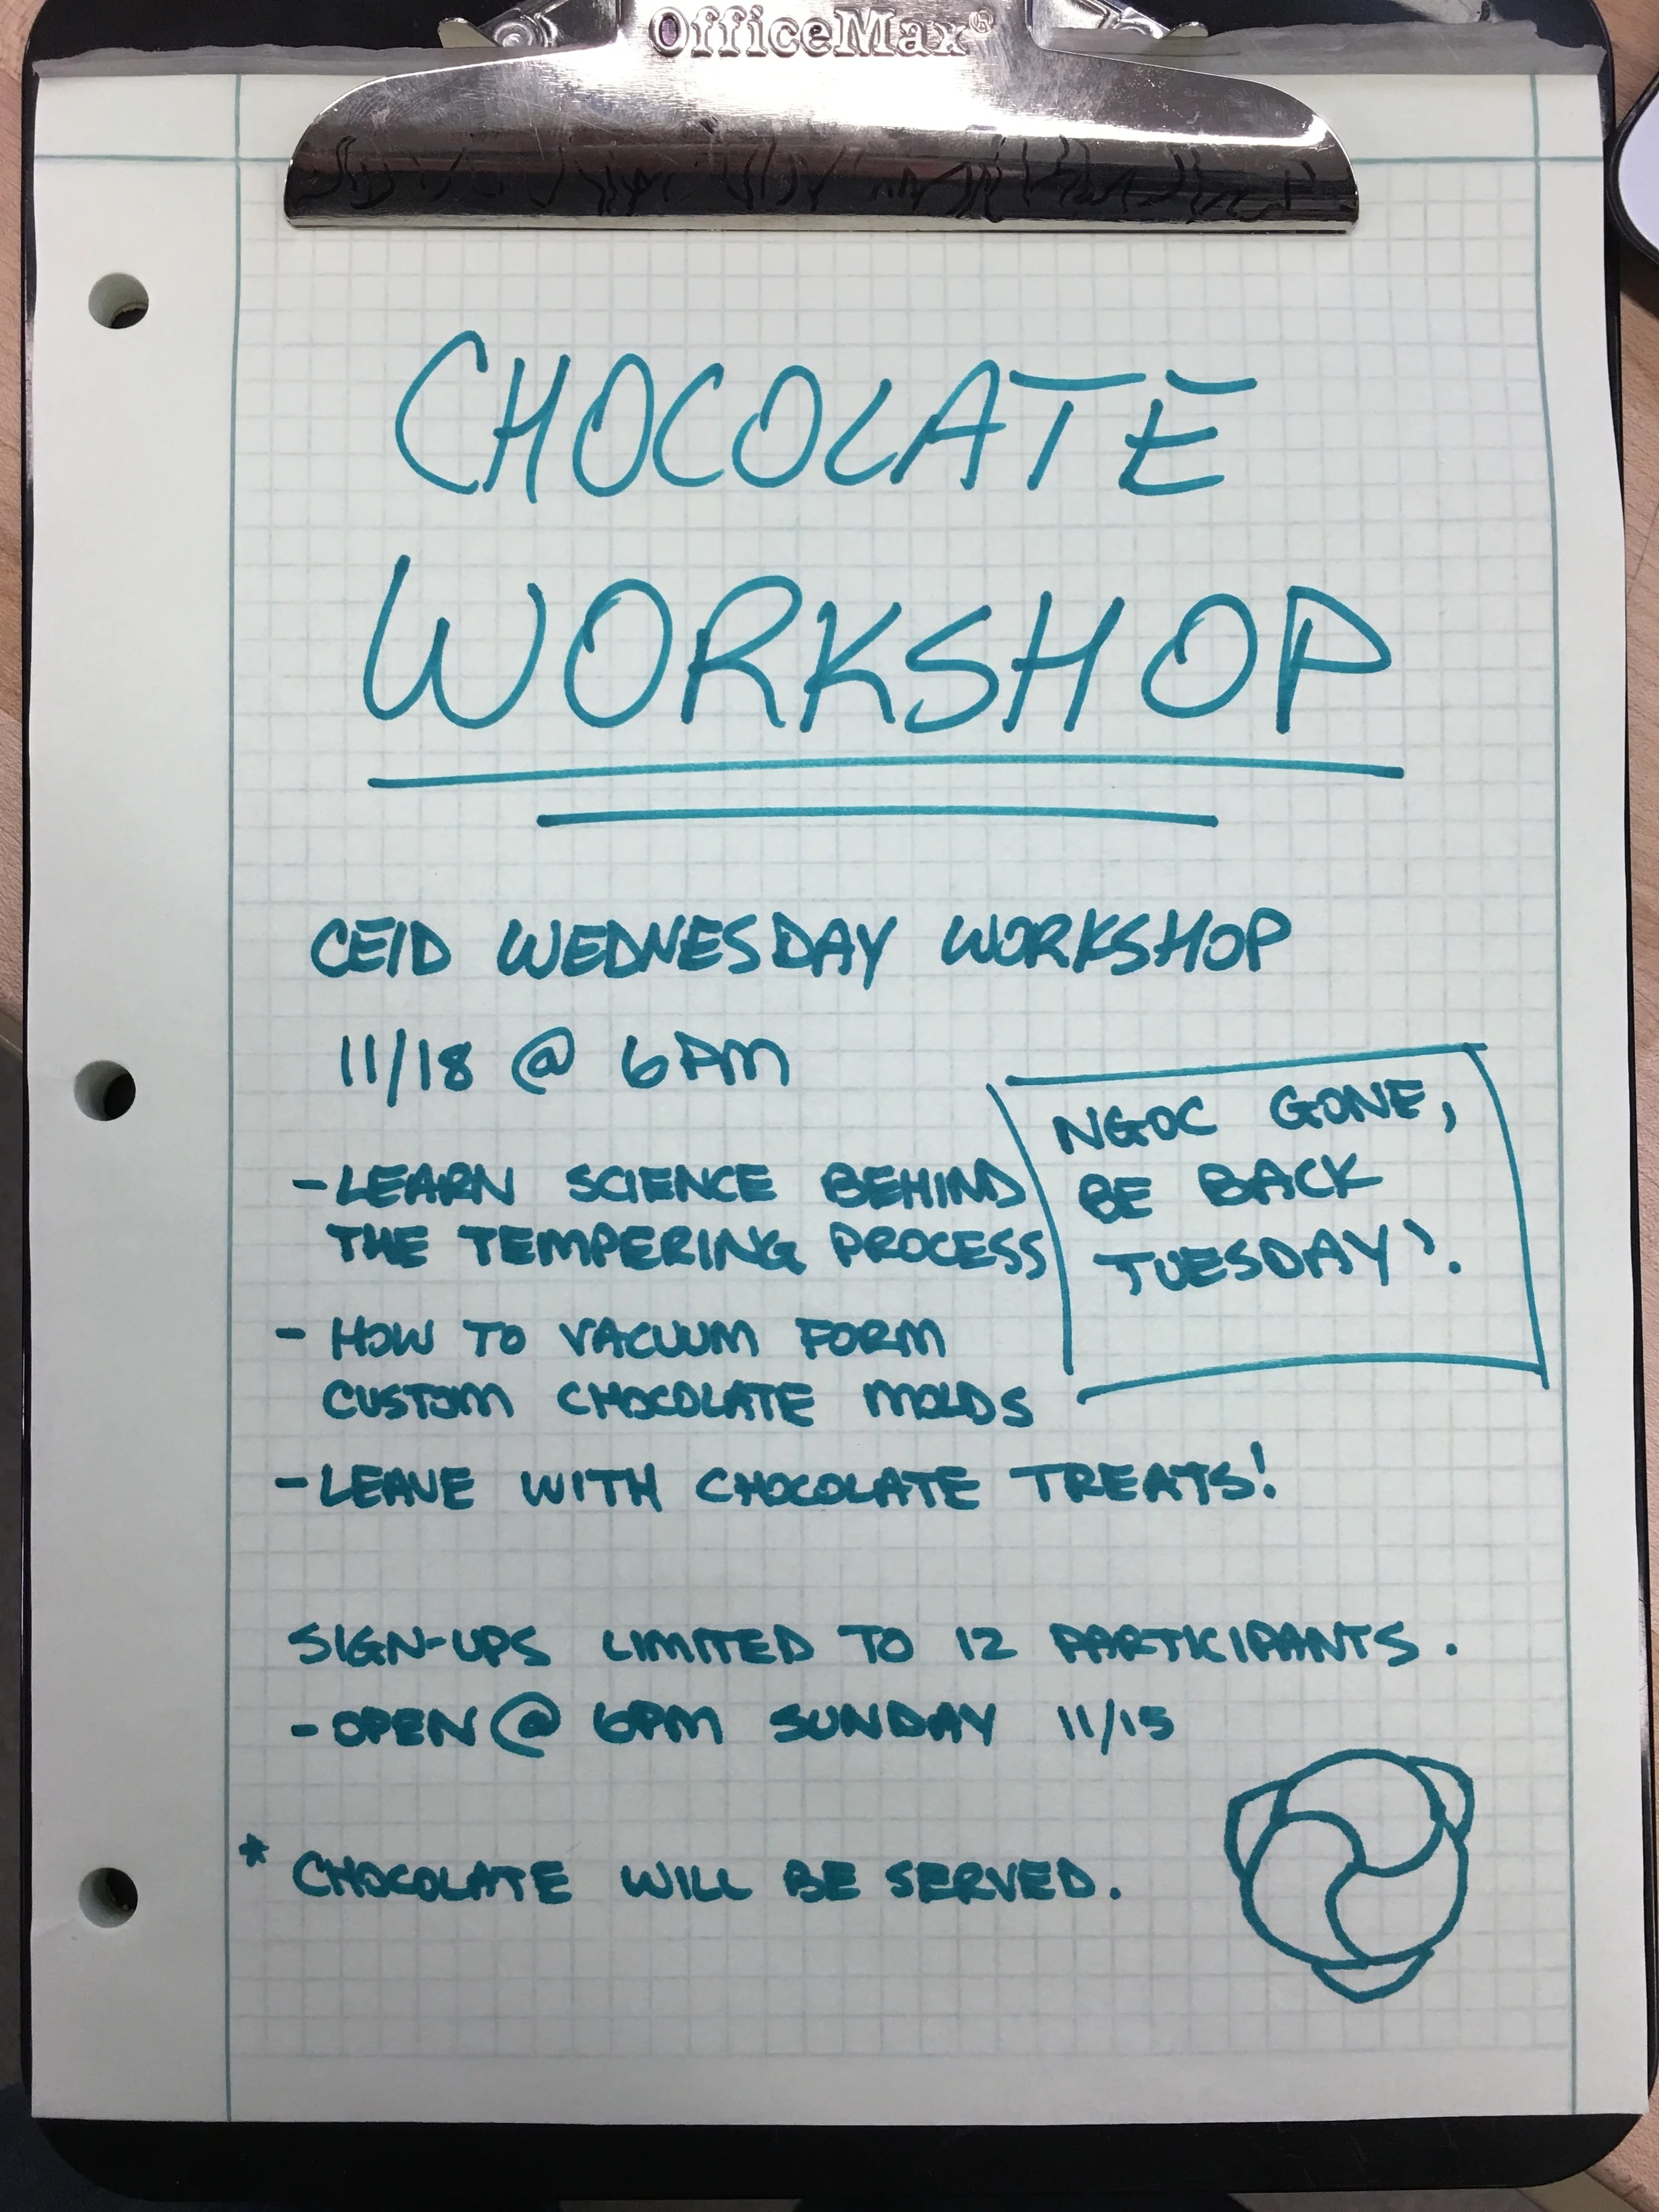 OfficeMax®
CHOCOLATE
WORKSHOP
CEID WEDNESDAY WORKSHOP
11/18 @ 6PM
NGOC GONE,
BE BACK
TUESDAY?.
- LEARN SCIENCE BEHIND
THE TEMPERING PROCESS
- HOW TO VACUUM FORM
CUSTOM CHOCOLATE MOLDS
- LEAVE WITH CHOCOLATE TREATS!
SIGN-UPS LIMITED TO 12 PARTICIPANTS.
- OPEN @ 6PM SUNDAY 11/15
* CHOCOLATE WILL BE SERVED.